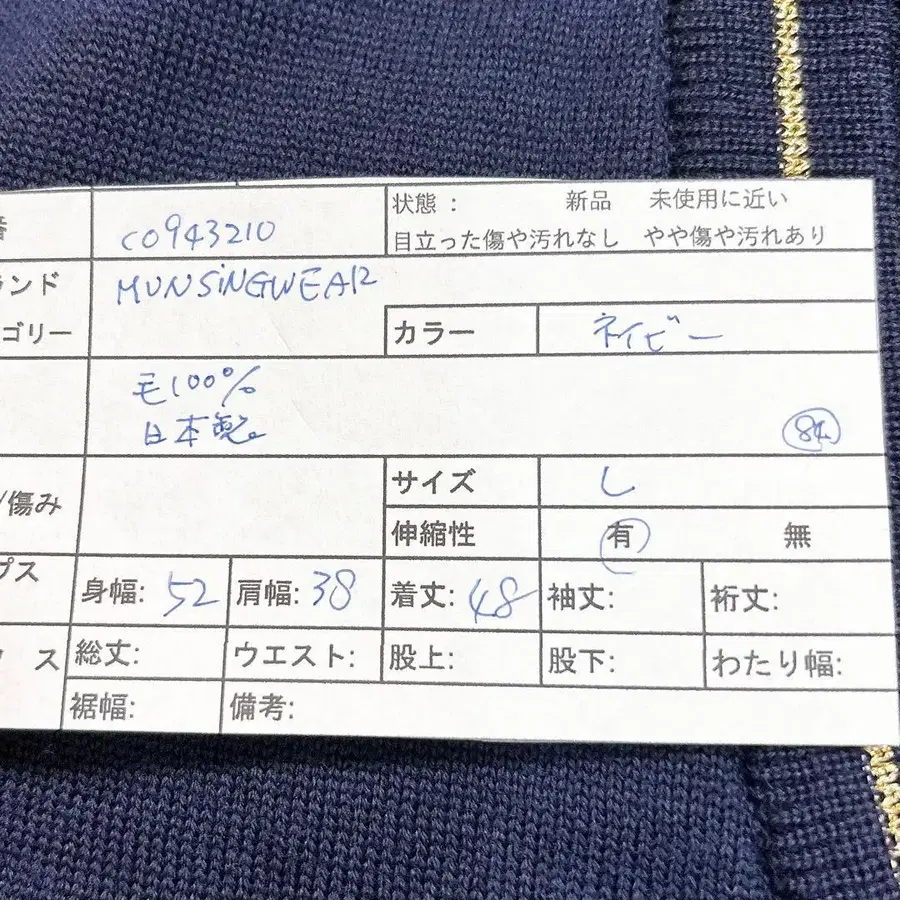 番 CO943210 状態 : 新品 未使用に近い
目立った傷や汚れなし やや傷や汚れあり
ランド MUNSiNGWEAR
ゴリー カラー ネイビー
毛100%
日本製。
/傷み サイズ L
伸縮性 有 無
プス 身幅: 52 肩幅: 38 着丈: 48 袖丈: 裄丈:
ス 総丈: ウエスト: 股上: 股下: わたり幅:
裾幅: 備考: